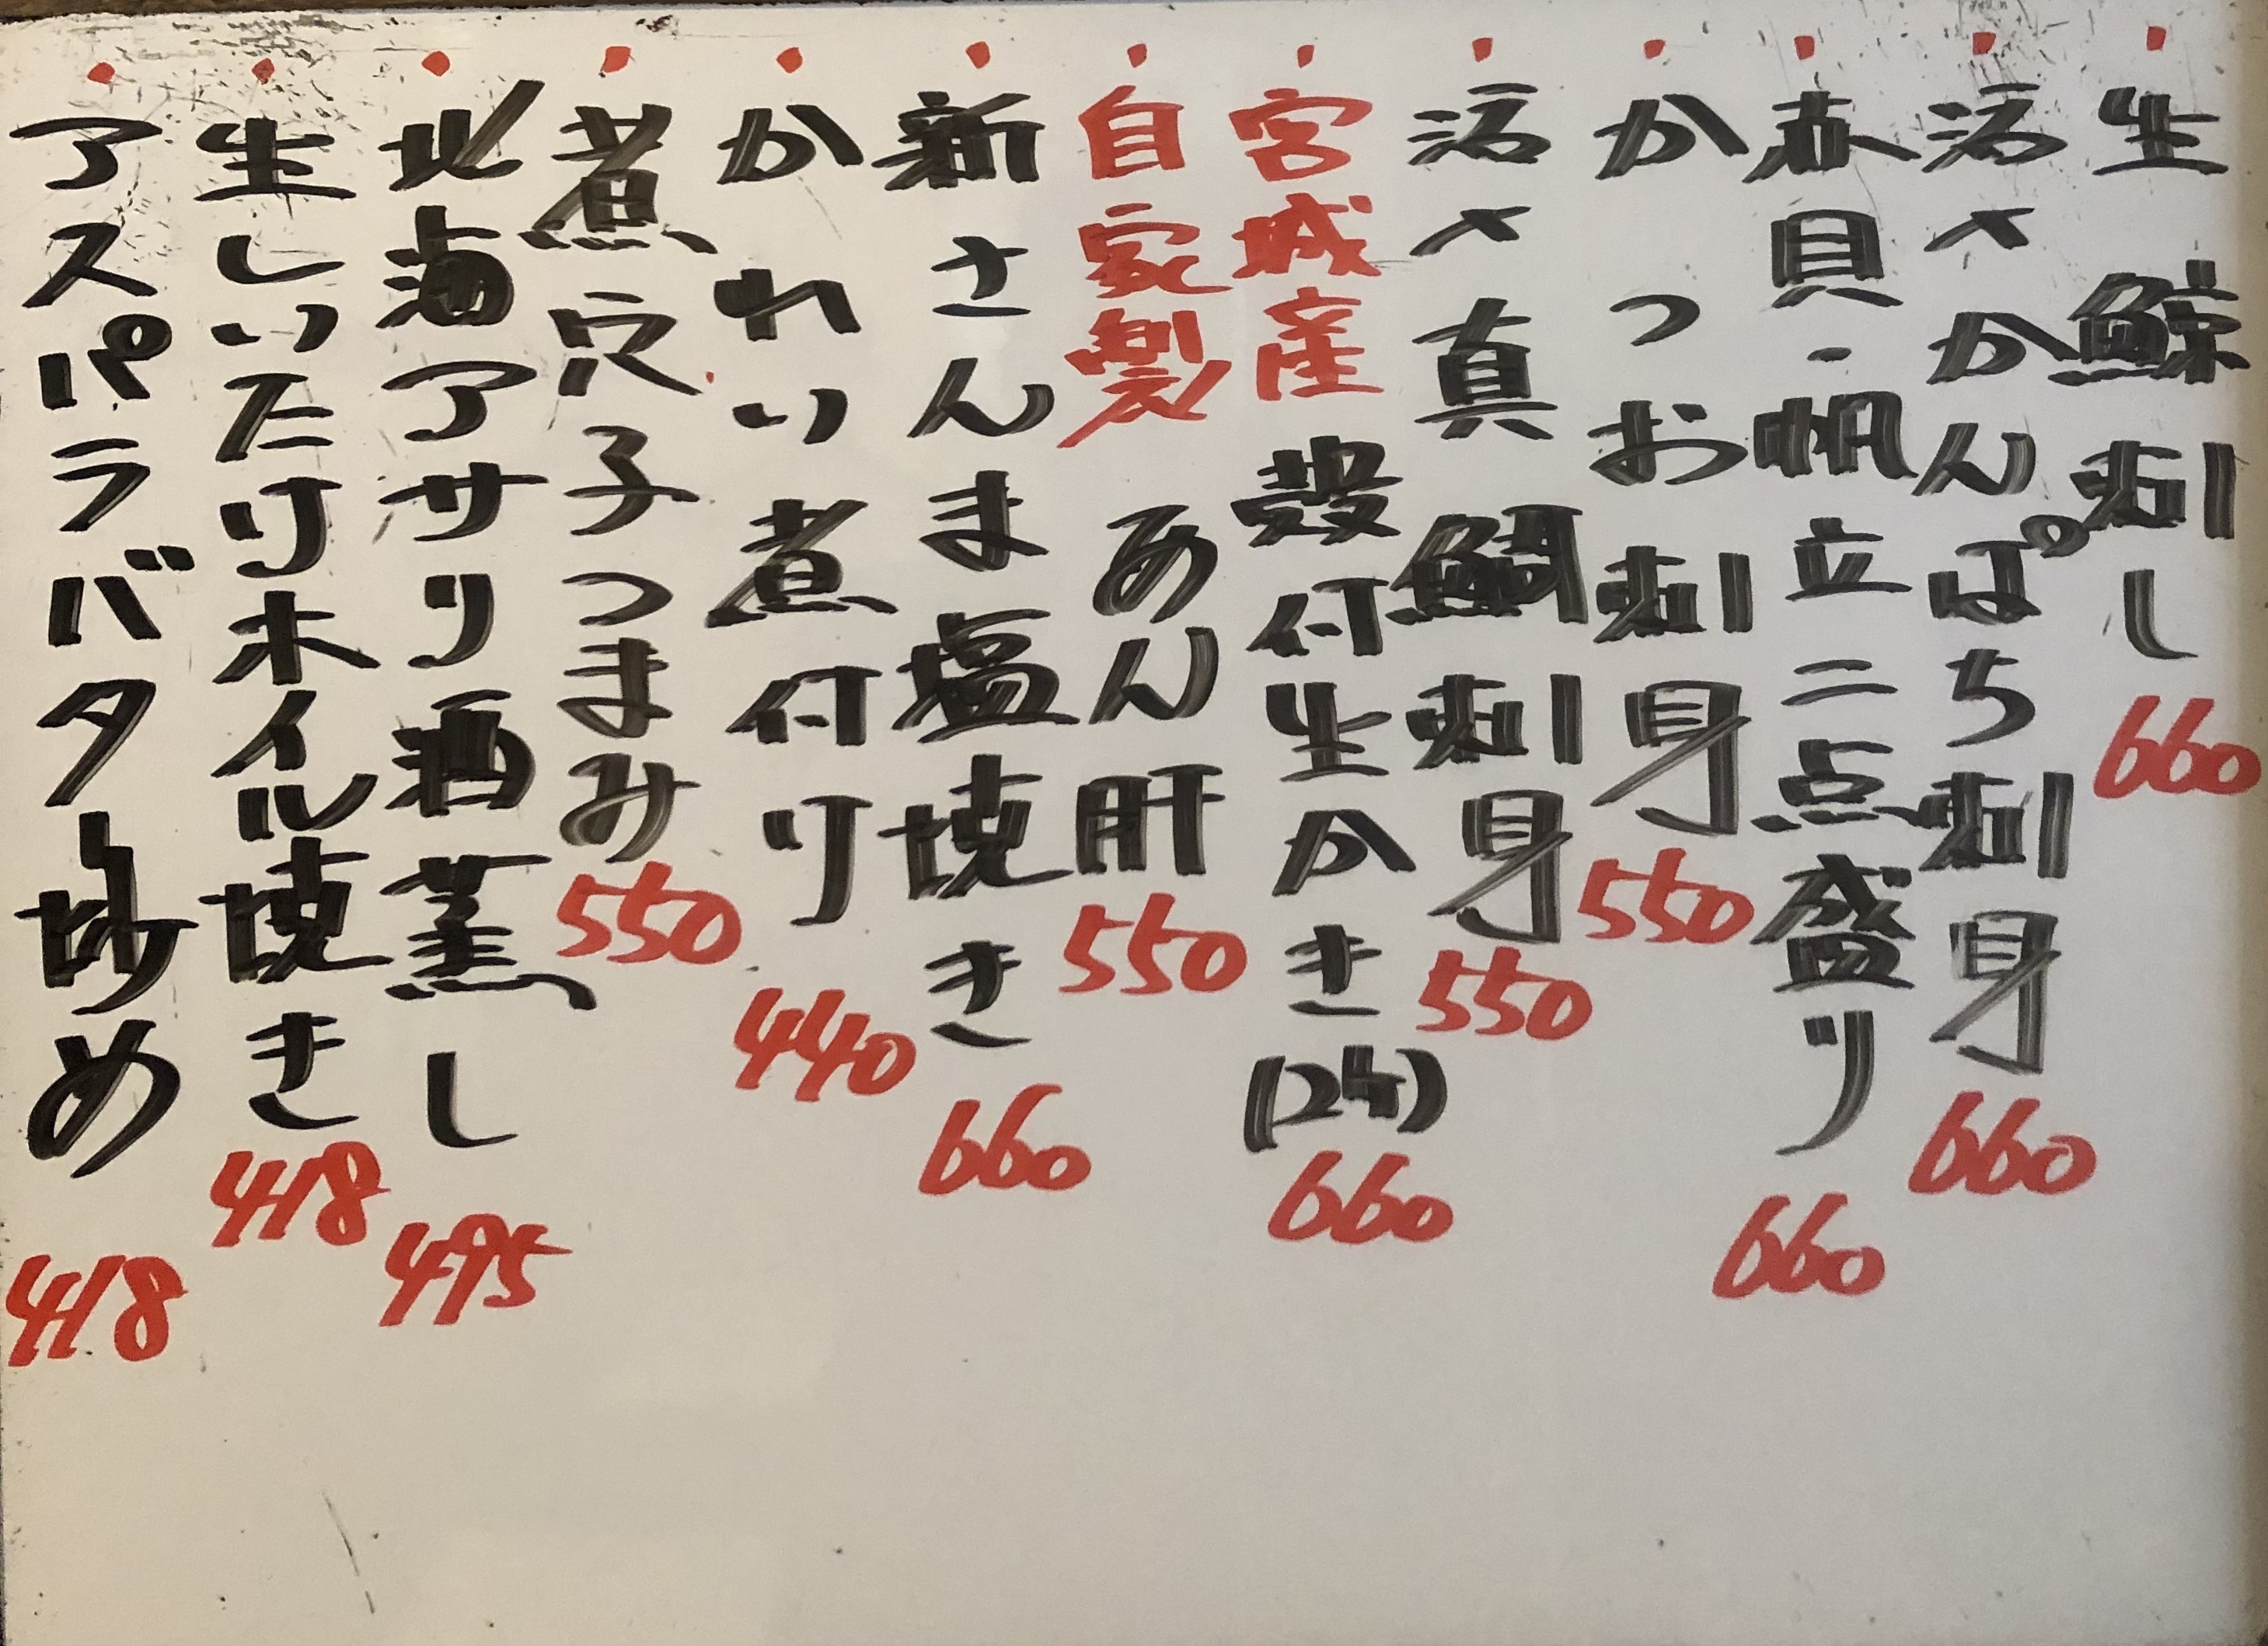 ・生鯨刺し 660
・活〆かんぱち刺身 660
・赤貝・帆立二点盛り 660
・かつお刺身 550
・活〆真鯛刺身 550
・宮城産 殻付生かき(2ケ) 660
・自家製 あん肝 550
・新さんま塩焼き 660
・かれい煮付け 440
・煮穴子つまみ 550
・北海アサリ酒蒸し 495
・生しいたけホイル焼き 418
・アスパラバター炒め 418